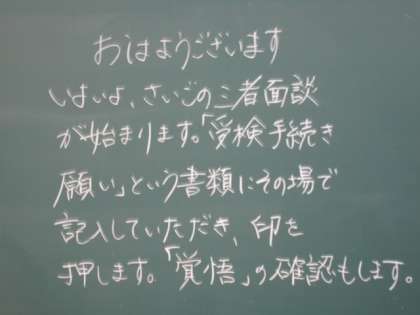 おはようございます
いよいよ、さいごの三者面談
が始まります。「受検手続き
願い」という書類にその場で
記入していただき、印を
押します。「覚悟」の確認もします。